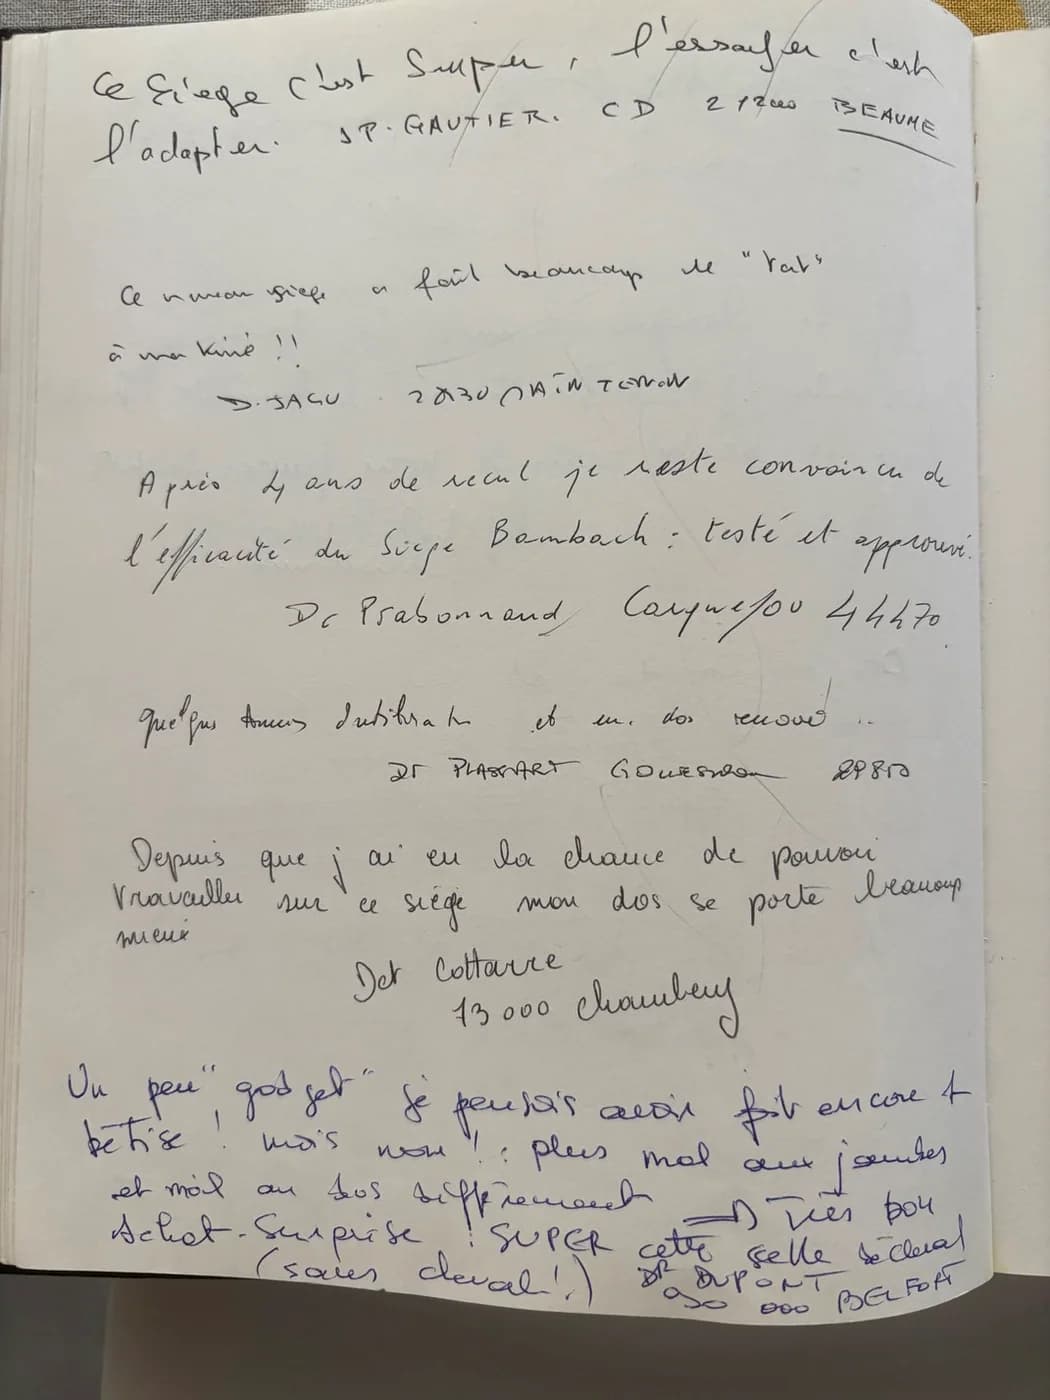 Ce siège c'est Super, l'essayer c'est
l'adopter. JP. GAUTIER. CD 21200 BEAUNE
Ce nouveau siège a fait beaucoup de "tort"
à ma Kiné !!
D. JAGU 28130 MAINTENON
Après 4 ans de recul je reste convaincu de
l'efficacité du Siège Bambach : testé et approuvé.
Dr Prabonnaud Carquefou 44470
quelques années d'utilisation et un dos renové ..
Dr PLASSART GOUESNOU 29850
Depuis que j'ai eu la chance de pouvoir
travailler sur ce siège mon dos se porte beaucoup
mieux
Dct Cottarre
73000 Chambery
Un peu "gadget" je pensais avoir fait encore 1
bêtise ! mais non ! : plus mal aux jambes
et mal au dos différemment ⇒ Très bon
Achat-Surprise ! SUPER cette selle de cheval
(sans cheval !) DR DUPONT
90 000 BELFORT